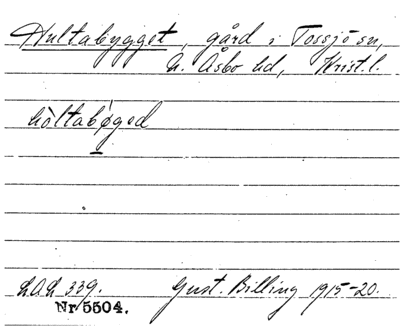 Hultabygget, gård i Tossjö sn,
N. Åsbo hd, Krist. l.
hòltabýged
LAL 339. Gust. Billing 1915-20.
Nr 5504.